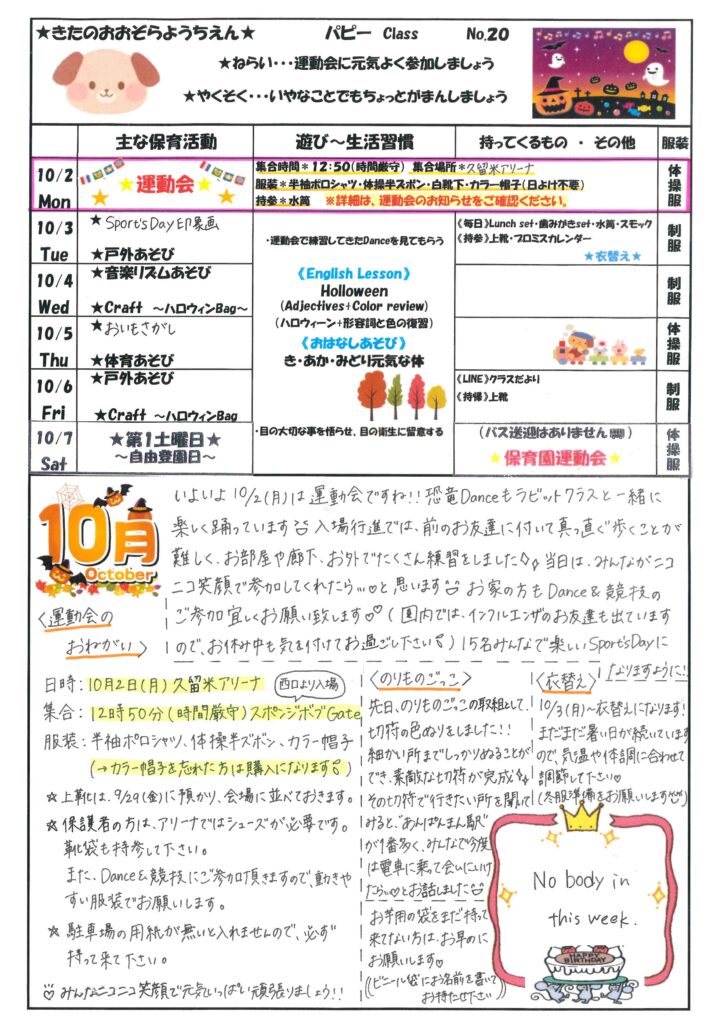 ★きたのおおぞらようちえん★　パピー Class　No.20
★ねらい・・・運動会に元気よく参加しましょう
★やくそく・・・いやなことでもちょっとがまんしましょう
主な保育活動　遊び～生活習慣　持ってくるもの ・ その他　服装
10/2 Mon
★運動会★
集合時間＊12：50(時間厳守)　集合場所＊久留米アリーナ
服装＊半袖ポロシャツ・体操半ズボン・白靴下・カラー帽子(日よけ不要)
持参＊水筒　※詳細は、運動会のお知らせをご確認ください。
体操服
10/3 Tue
★Sport'sDay印象画
★戸外あそび
・運動会で練習してきたDanceを見てもらう
《毎日》Lunch set・歯みがきset・水筒・スモック
《持参》上靴・プロミスカレンダー
★衣替え★
制服
10/4 Wed
★音楽リズムあそび
★Craft ～ハロウィンBag～
《English Lesson》
Holloween
(Adjectives+Color review)
(ハロウィーン+形容詞と色の復習)
制服
10/5 Thu
★おいもさがし
★体育あそび
《おはなしあそび》
き・あか・みどり元気な体
体操服
10/6 Fri
★戸外あそび
★Craft ～ハロウィンBag
《LINE》クラスだより
《持帰》上靴
制服
10/7 Sat
★第1土曜日★
～自由登園日～
・目の大切な事を悟らせ、目の衛生に留意する
(バス送迎はありません)
★保育園運動会★
体操服
10月
October
いよいよ10/2(月)は運動会ですね!!恐竜Danceもラビットクラスと一緒に
楽しく踊っています 入場行進では、前のお友達に付いて真っ直ぐ歩くことが
難しく、お部屋や廊下、お外でたくさん練習をしました 当日は、みんながニコ
ニコ笑顔で参加してくれたら…♡と思います お家の方もDance&競技の
ご参加宜しくお願い致します♡(園内では、インフルエンザのお友達も出ています
ので、お休み中も気を付けてお過ごし下さい)15名みんなで楽しいSport'sDayに
なりますように!!
〈運動会の
おねがい〉
日時：10月2日(月)久留米アリーナ 西口より入場
集合：12時50分(時間厳守)スポンジボブGate
服装：半袖ポロシャツ、体操半ズボン、カラー帽子
(→カラー帽子を忘れた方は購入になります)
☆上靴は、9/29(金)に預かり、会場に並べておきます。
☆保護者の方は、アリーナではシューズが必要です。
靴袋も持参して下さい。
また、Dance&競技にご参加頂きますので、動きや
すい服装でお願いします。
☆駐車場の用紙が無いと入れませんので、必ず
持って来て下さい。
みんなニコニコ笑顔で元気いっぱい頑張りましょう!!
〈のりものごっこ〉
先日、のりものごっこの取組として、
切符の色ぬりをしました!!
細かい所までしっかりぬることが
でき、素敵な切符が完成
その切符で行きたい所を聞いて
みると、“あんぱんまん駅”
が1番多く、みんなで今度
は電車に乗って会いにいけ
たら…♡とお話しました
お芋用の袋をまだ持って
来てない方は、お早めに
お願いします♡
(ビニール袋にお名前を書いて
お持たせ下さい)
〈衣替え〉
10/3(月)～衣替えになります!
まだまだ暑い日が続いています
ので、気温や体調に合わせて
調節して下さい♡
(冬服準備をお願いします)
No body in
this week.
HAPPY
BIRTHDAY